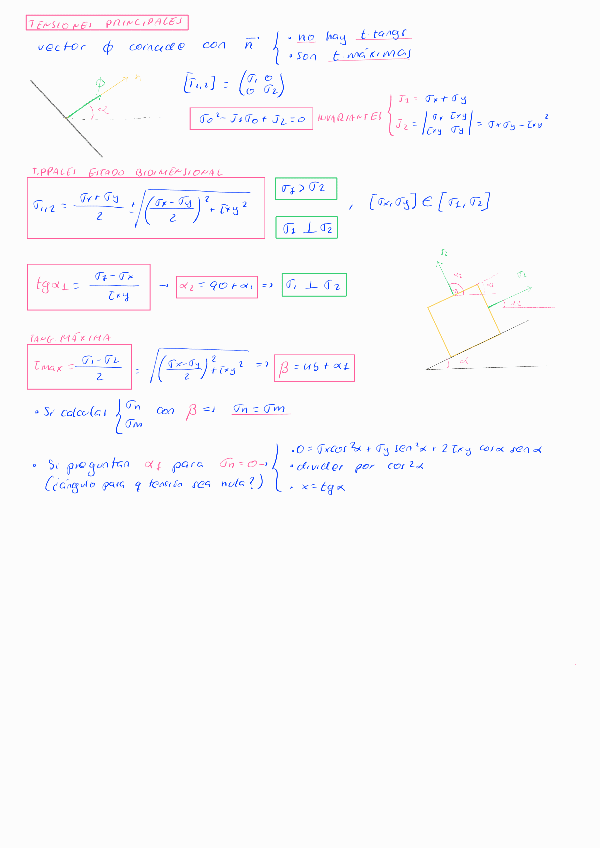 TENSIONES PRINCIPALES
vector ϕ coincide con n⃗ { • no hay t tangs
• son t máximas
[T₁,₂] = (σ₁ 0
0 σ₂)
σ₀² - J₁σ₀ + J₂ = 0 INVARIANTES { J₁ = σx + σy
J₂ = |σx τxy
τxy σy| = σxσy - τxy²
α
T. PPALES ESTADO BIDIMENSIONAL
σ₁,₂ = (σx + σy)/2 ± √(((σx - σy)/2)² + τxy²)
σ₁ > σ₂
σ₁ ⊥ σ₂
, [σx, σy] ∈ [σ₁, σ₂]
tgα₁ = (σ₁ - σx)/τxy → α₂ = 90 + α₁ => σ₁ ⊥ σ₂
σ₂
σ₁
α
TANG MÁXIMA
τmax = (σ₁ - σ₂)/2 = √(((σx - σy)/2)² + τxy²) => β = 45 + α₁
• Si calculas { σn
σm con β => σn = σm
• Si preguntan α₁ para σn = 0 → { • 0 = σx cos²α + σy sen²α + 2τxy cosα senα
(¿ángulo para q tensión sea nula?) • dividir por cos²α
• x = tgα